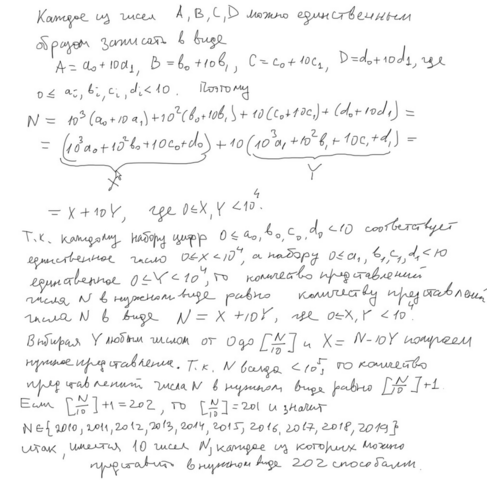 Каждое из чисел A, B, C, D можно единственным
образом записать в виде
A = a₀+10a₁, B = b₀+10b₁, C = c₀+10c₁, D = d₀+10d₁, где
0 ≤ aᵢ, bᵢ, cᵢ, dᵢ < 10. Поэтому
N = 10³(a₀+10a₁)+10²(b₀+10b₁)+10(c₀+10c₁)+(d₀+10d₁) =
= (10³a₀+10²b₀+10c₀+d₀) + 10(10³a₁+10²b₁+10c₁+d₁) =
X Y
= X + 10Y, где 0≤X,Y<10⁴.
Т.к. каждому набору цифр 0≤a₀, b₀, c₀, d₀<10 соответствует
единственное число 0≤X<10⁴, а набору 0≤a₁, b₁, c₁, d₁<10
единственное 0≤Y<10⁴, то количество представлений
числа N в нужном виде равно количеству представлений
числа N в виде N = X + 10Y, где 0≤X,Y<10⁴.
Выбирая Y любым числом от 0 до [N/10] и X = N-10Y получаем
нужное представление. Т.к. N всегда <10⁵, то количество
представлений числа N в нужном виде равно [N/10]+1.
Если [N/10]+1=202, то [N/10]=201 и значит
N∈{2010, 2011, 2012, 2013, 2014, 2015, 2016, 2017, 2018, 2019}
Итак, имеется 10 чисел N, каждое из которых можно
представить в нужном виде 202 способами.